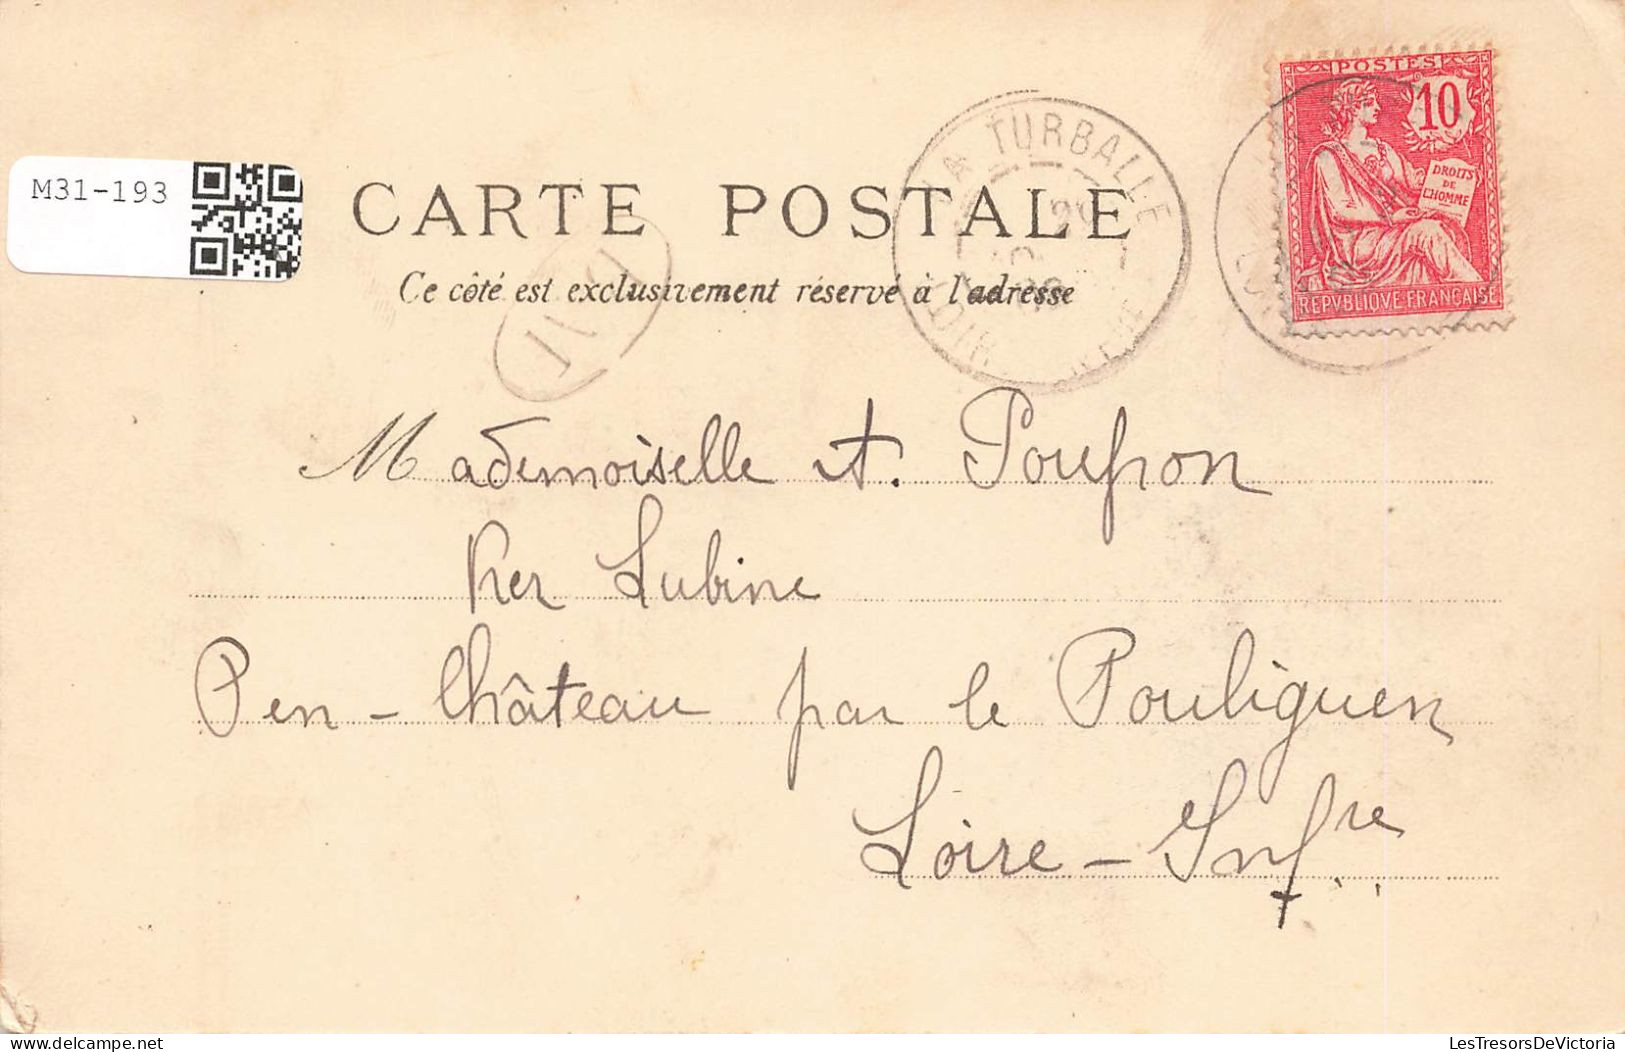 POSTES
10
DROITS
DE
L'HOMME
REPVBLIQVE FRANÇAISE
LA TURBALLE
M31-193
CARTE POSTALE
Ce côté est exclusivement réservé à l'adresse
Mademoiselle A. Poupon
Ker Lubine
Pen-Château par le Pouliguen
Loire-Infre
LesTresorsDeVictoria